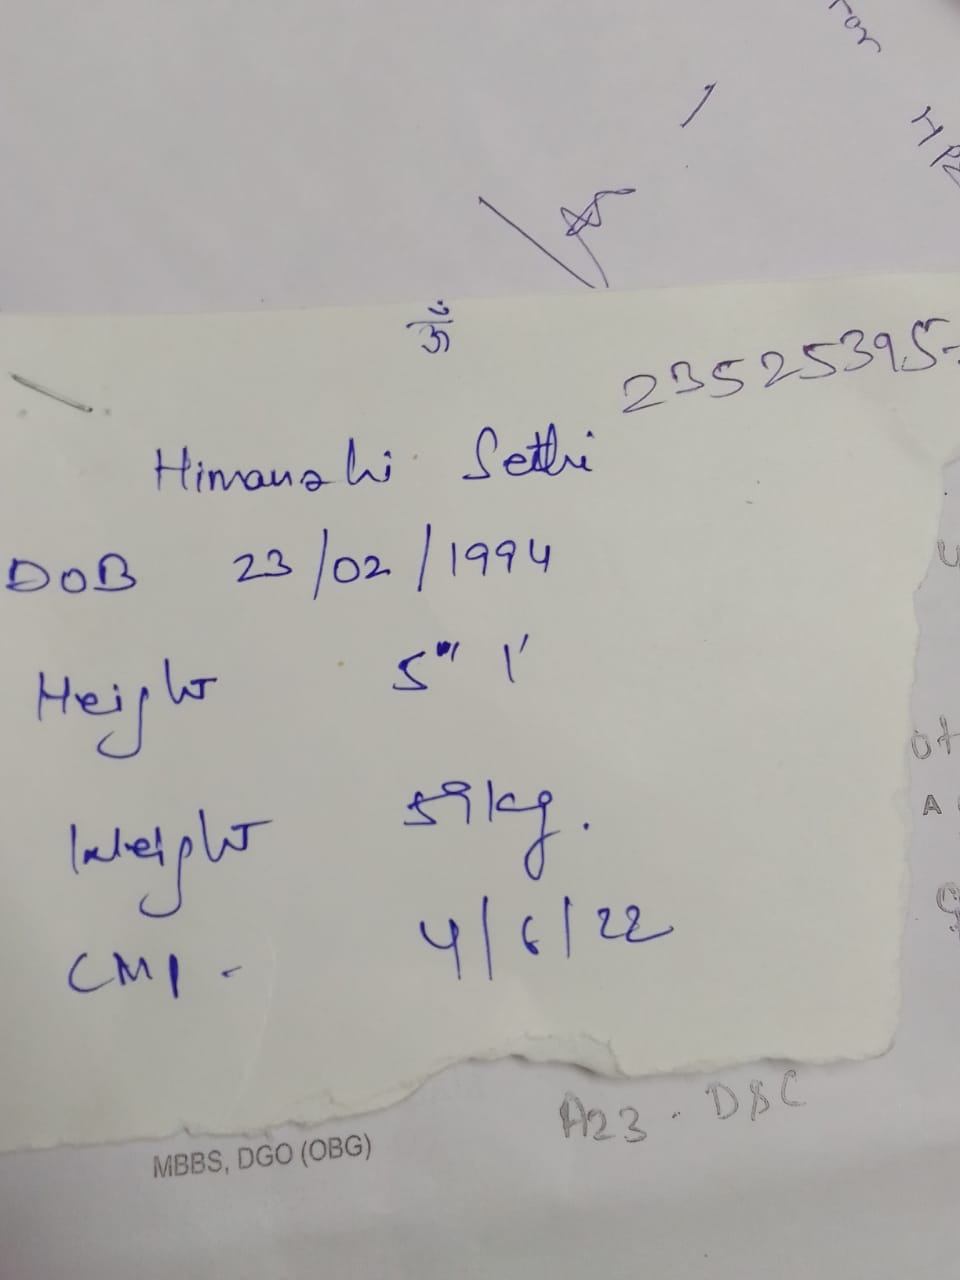 ॐ
23525395
Himanshi Sethi
DOB 23/02/1994
Height 5"' 1'
Weight 59kg.
CMP - 4/6/22
A23 - D&C
MBBS, DGO (OBG)